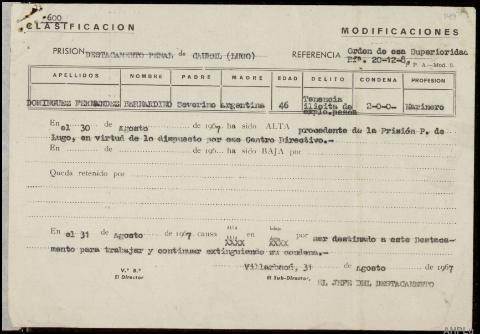 600
CLASIFICACION MODIFICACIONES
PRISION DESTACAMENTO PENAL de (LUGO) REFERENCIA Orden de esa Superioridad
Rfª. 20-12-8ª P. A.—Mod. 5.
APELLIDOS NOMBRE PADRE MADRE EDAD DELITO CONDENA PROFESION
DOMINGUEZ FERNANDEZ BERNARDINO Severino Argentina 46 Tenencia ilicita de explo.pesca 2-0-0- Marinero
En el 30 Agosto de 1967 ha sido ALTA procedente de la Prisión P. de
Lugo, en virtud de lo dispuesto por ese Centro Directivo.-
En de de 196 ha sido BAJA por
Queda retenido por
En el 31 Agosto de 1967 causa Alta XXXX en Alta XXXX por ser destinado a este Destaca-
mento para trabajar y continuar extinguiendo su condena.-
Villarbacú, 31 de Agosto de 1967
V.º B.º
El Director El Sub-Director
EL JEFE DEL DESTACAMENTO